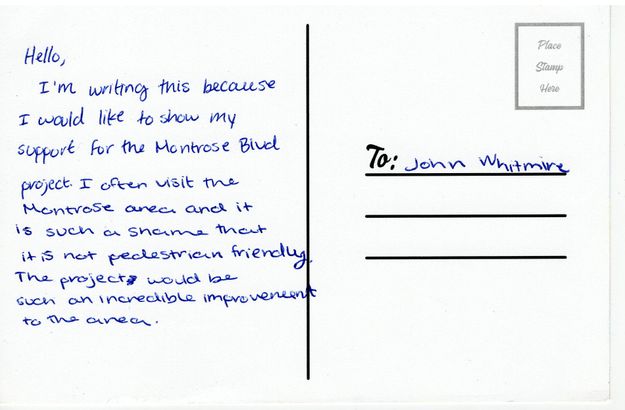 Hello,
I'm writing this because
I would like to show my
support for the Montrose Blvd
project. I often visit the
Montrose area and it
is such a shame that
it is not pedestrian friendly.
The project would be
such an incredible improvement
to the area.
Place
Stamp
Here
To: John Whitmire